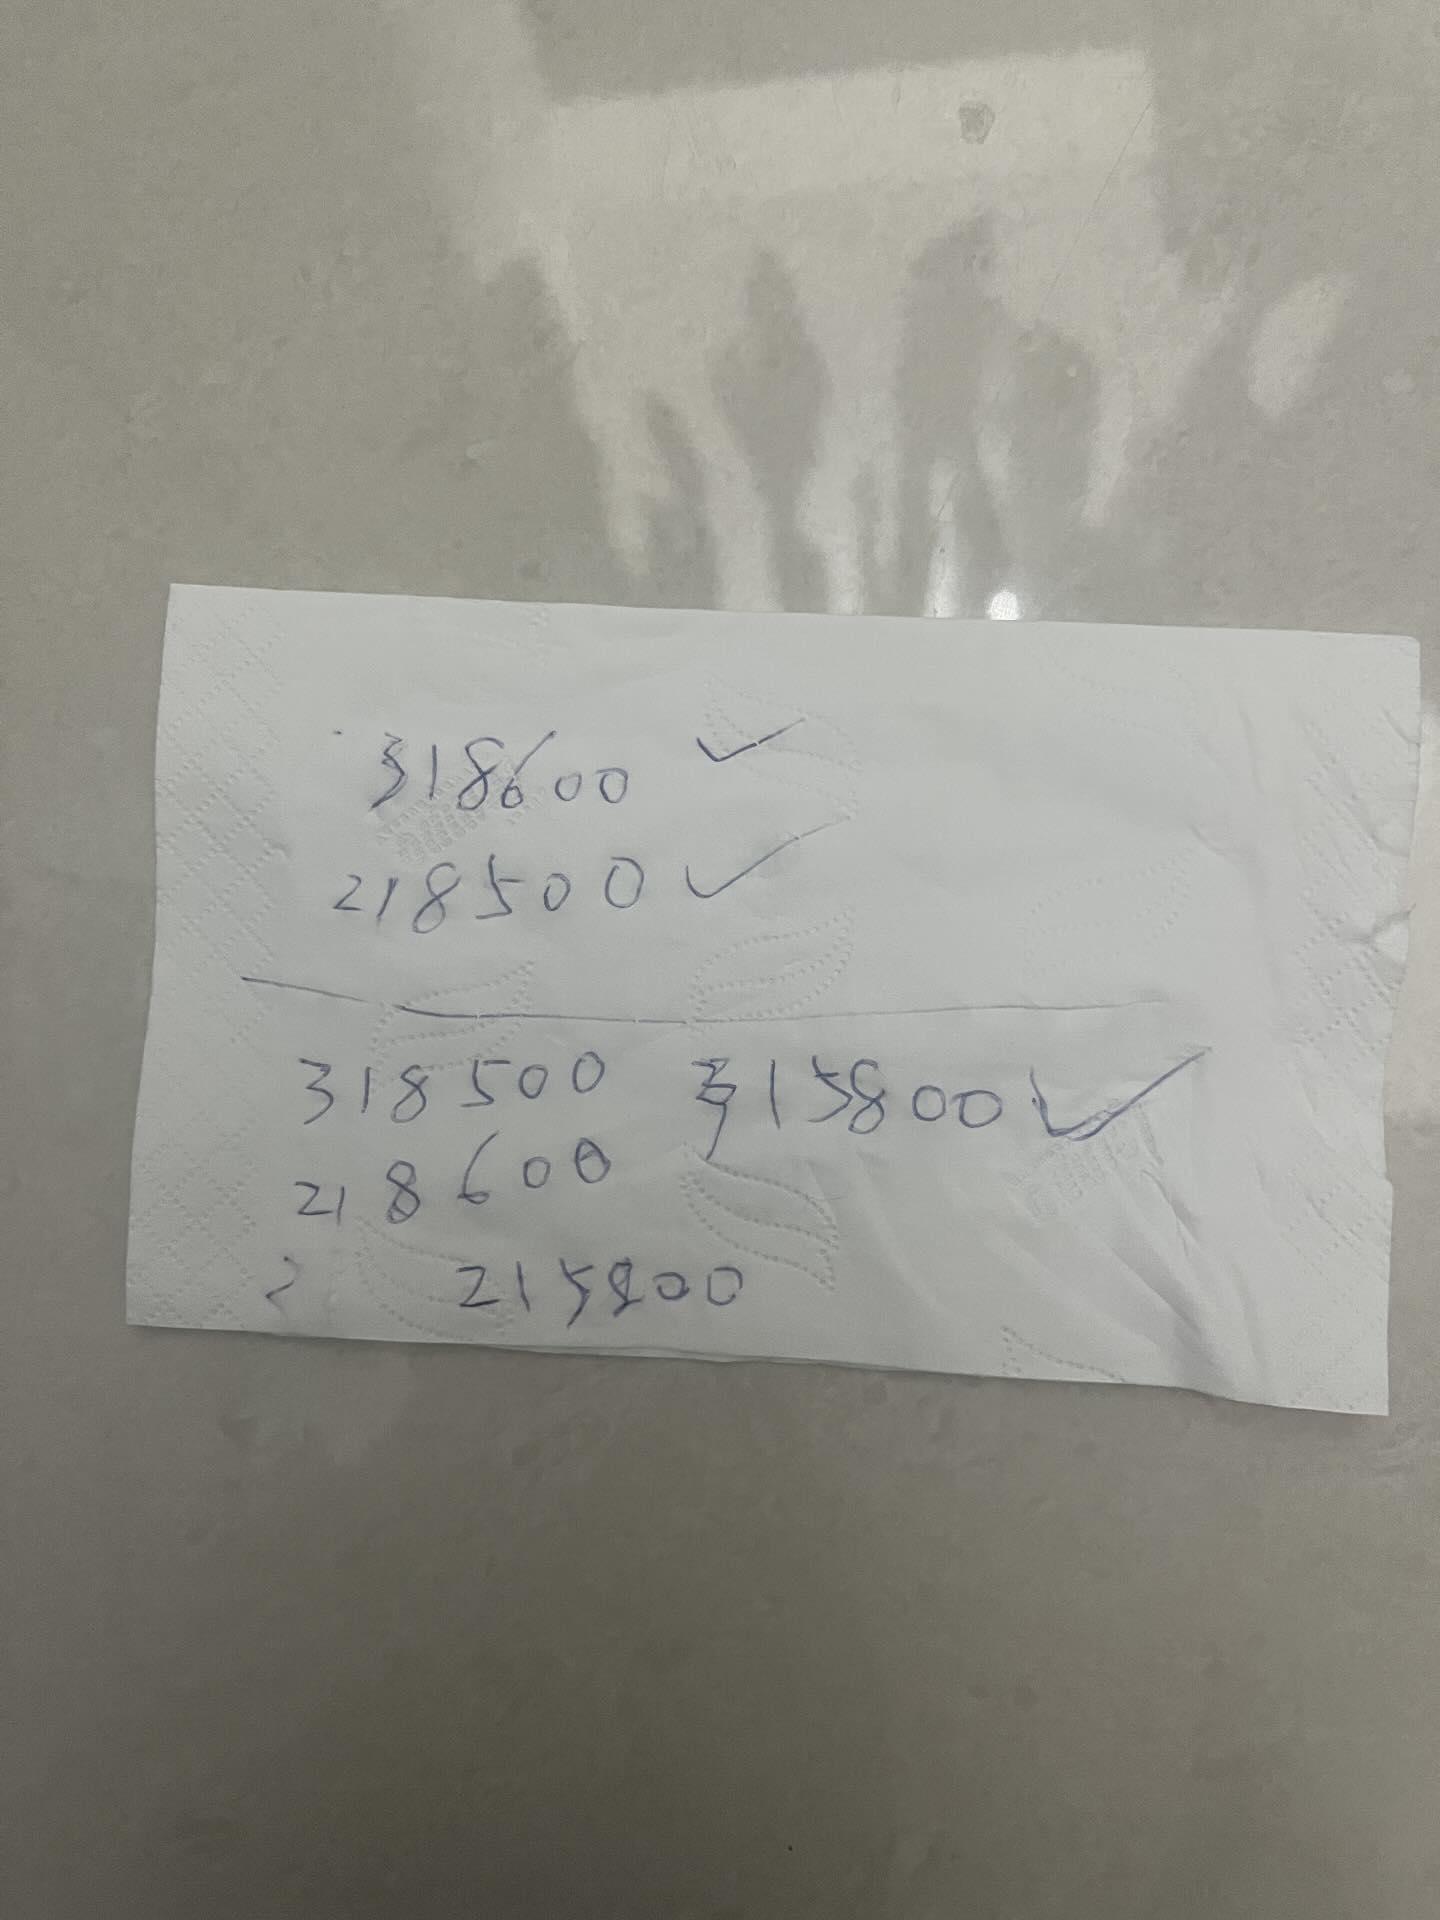 318600 ✓
218500 ✓
318500 315800 ✓
218600
2 215800